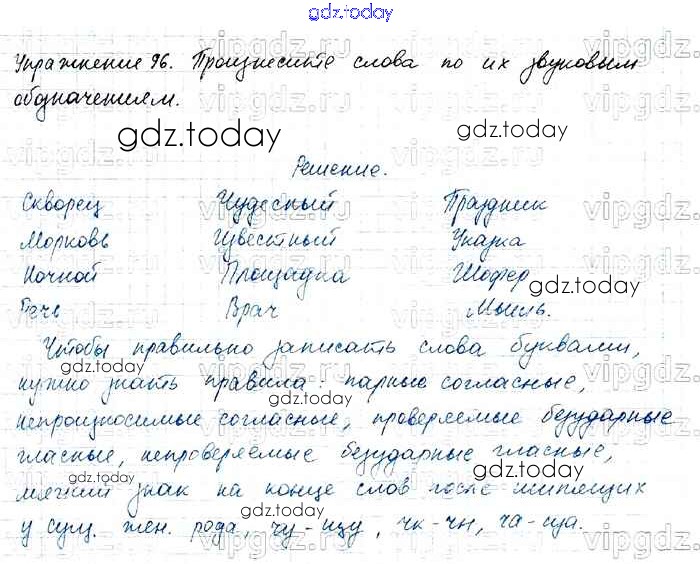 gdz.today
Упражнение 96. Произнесите слова по их звуковым
обозначениям.
gdz.today gdz.today
Решение.
Скворец Чудесный Праздник
Морковь Известный Указка
Ночной Площадка Шофёр
gdz.today
Печь Врач Мысль.
Чтобы правильно записать слова буквами,
gdz.today gdz.today
нужно знать правила: парные согласные,
непроизносимые согласные, проверяемые безударные
гласные, непроверяемые безударные гласные,
gdz.today gdz.today
мягкий знак на конце слов после шипящих
у сущ. жен. рода, чу-щу, чк-чн, ча-ща.